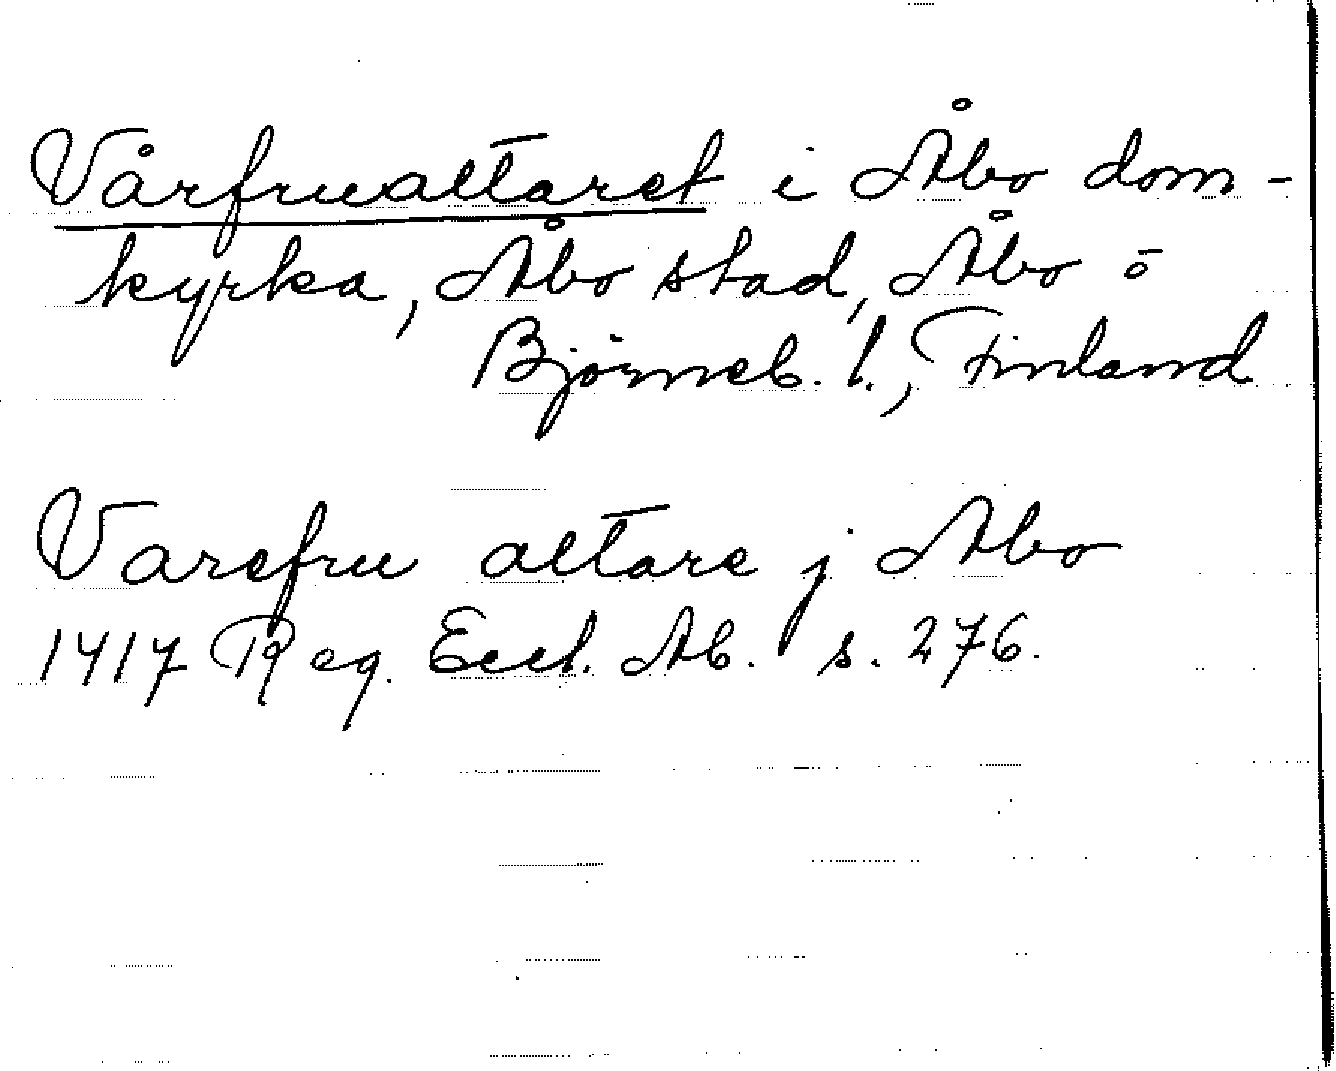 Vårfrualtaret i Åbo dom-
kyrka, Åbo stad, Åbo ō
Björneb. l., Finland
Varefru altare j Abo
1417 Reg. Eccl. Ab. s. 276.